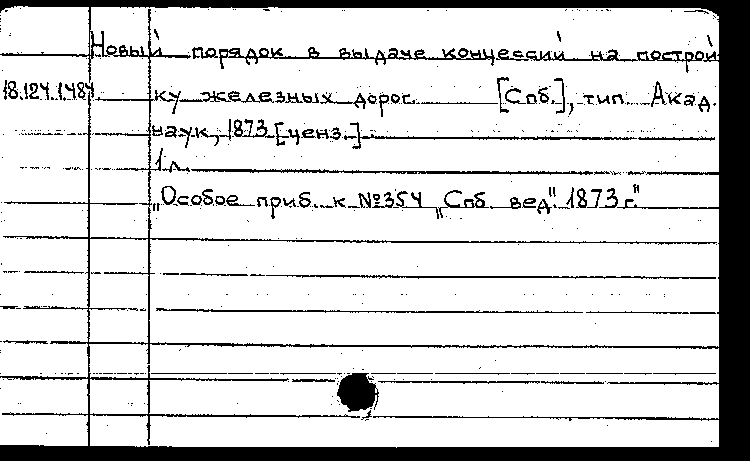 Новый порядок в выдаче концессий на построй
18.124.1.484. ку железных дорог. [Спб.], тип. Акад.
наук, 1873 [ценз.]
1 л.
„Особое приб. к №354 „Спб. вед". 1873 г."